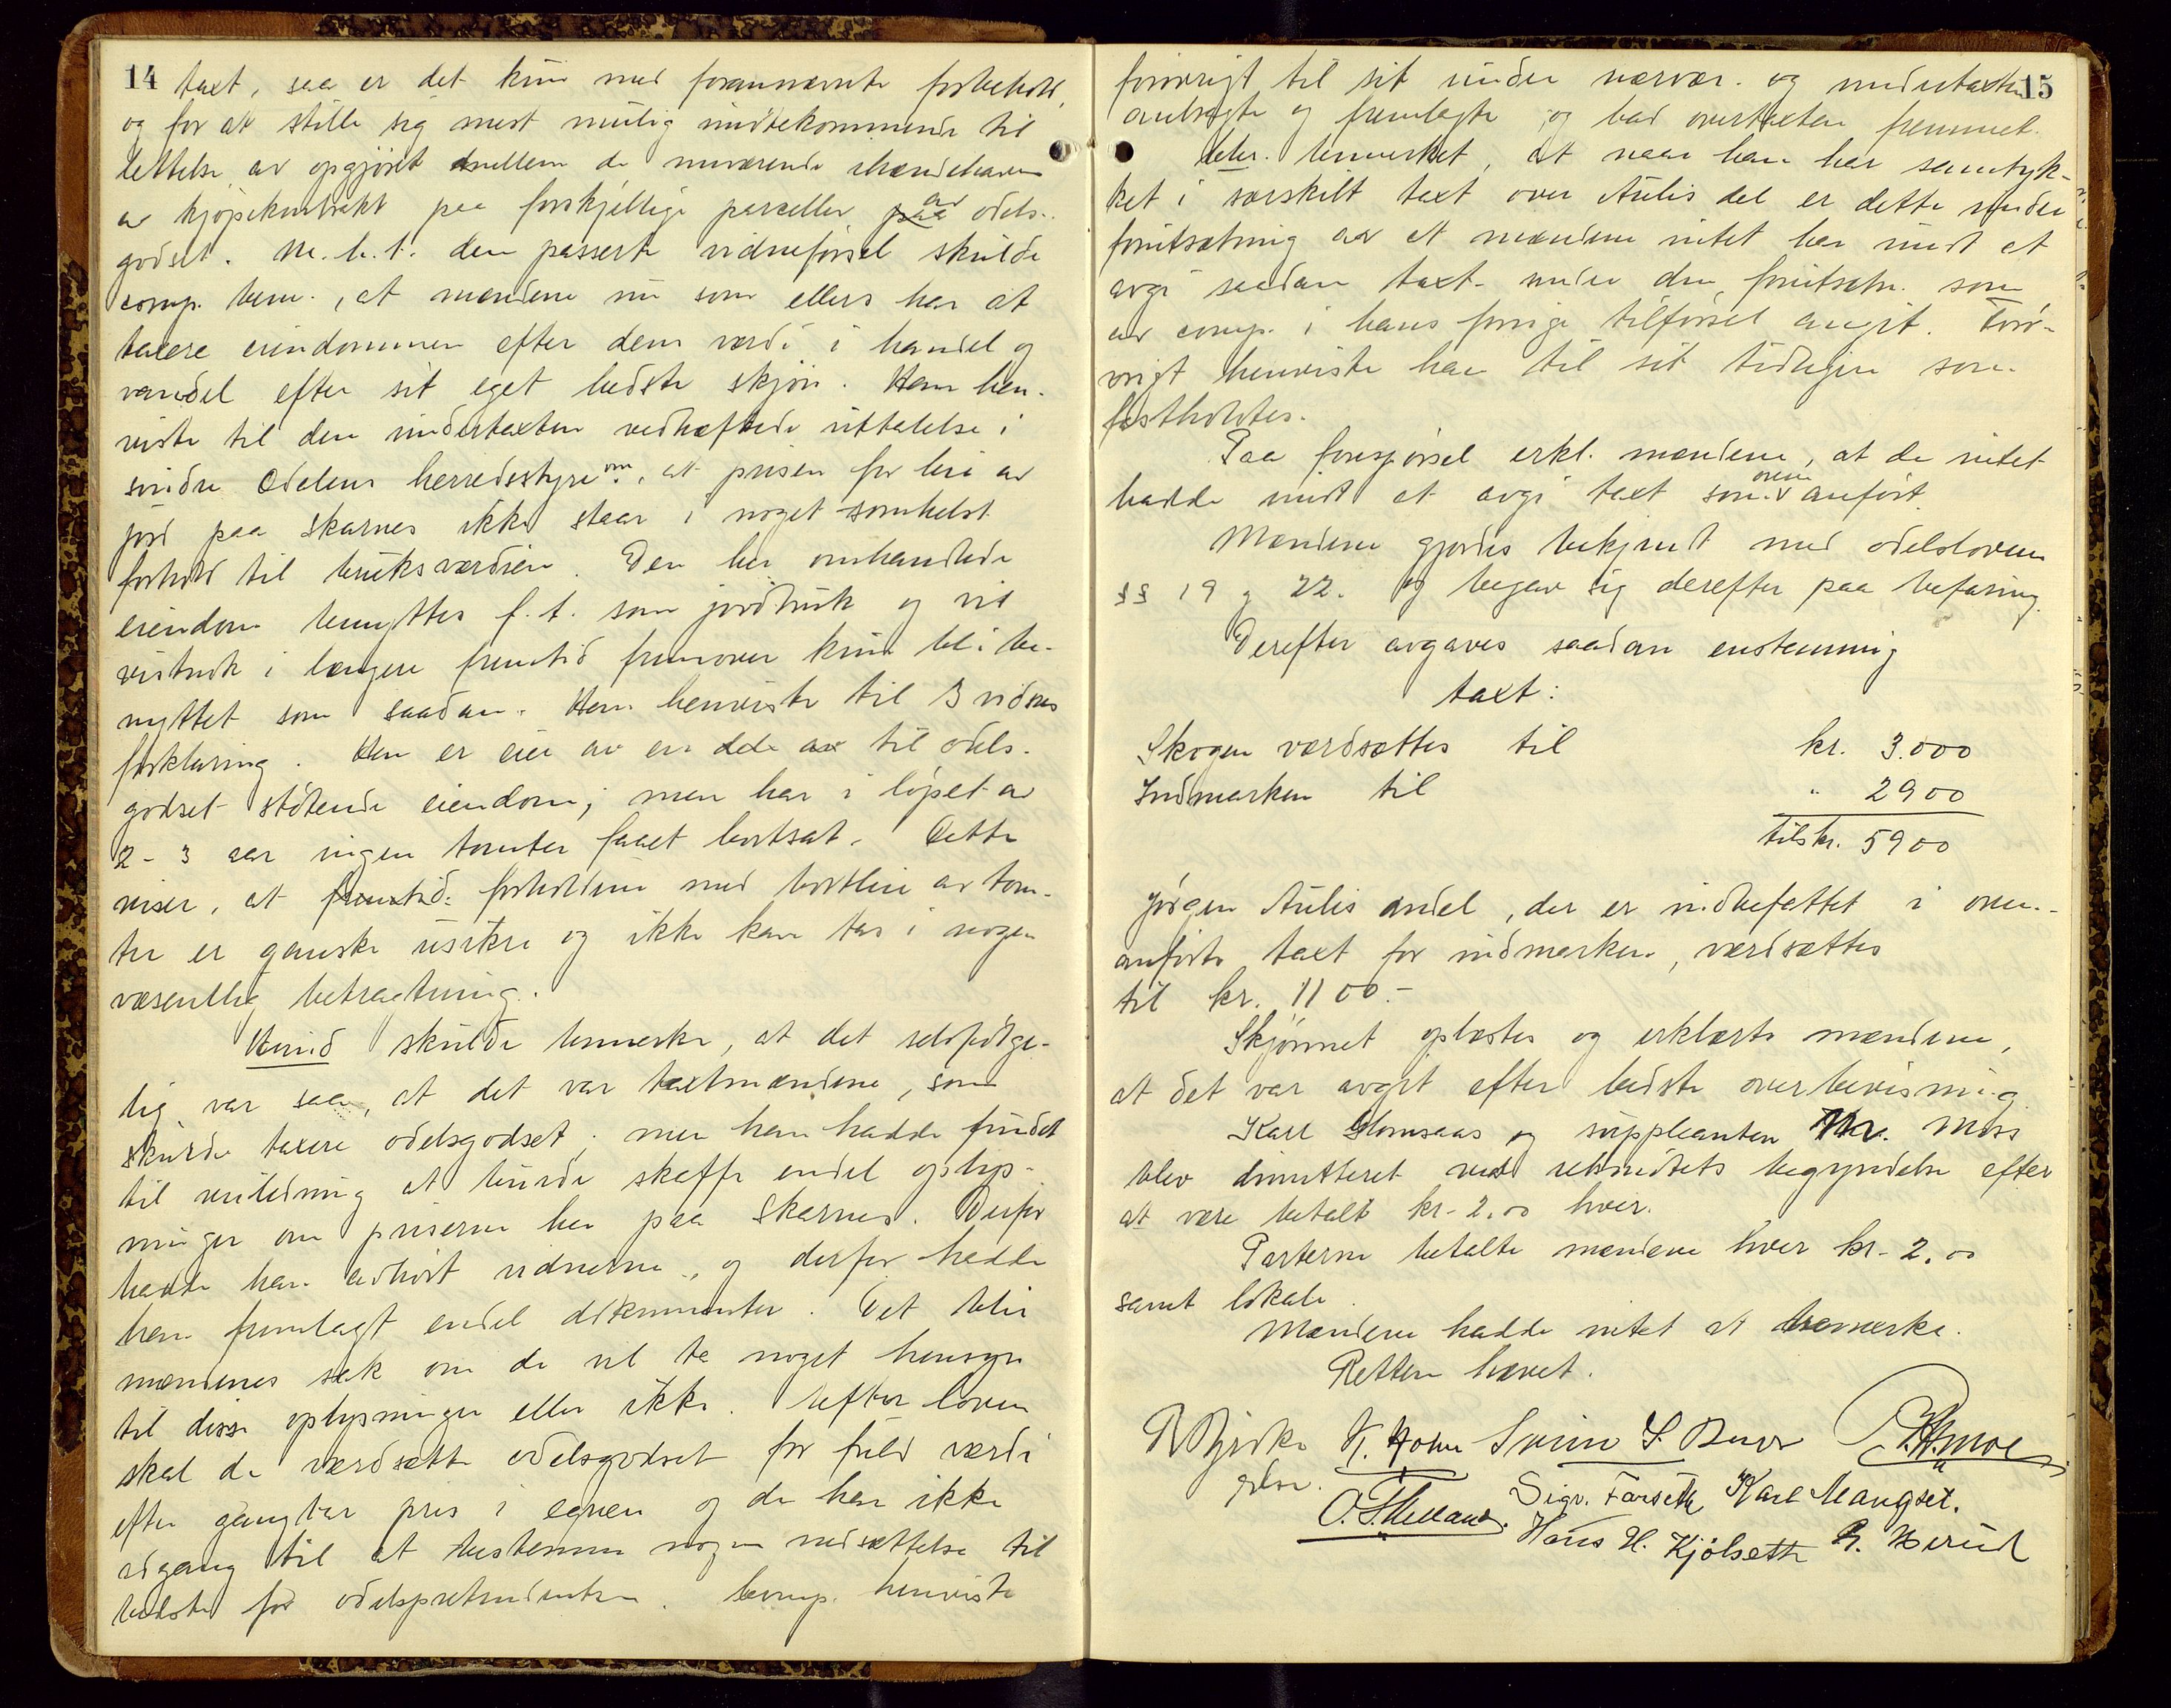 14
taxt, saa er det kun med forannævnte forbehold,
og for at stille sig mest mulig imøtekommende til
lettelse av opgjøret mellem de nuværende ihændehavere
av kjøpekontrakt paa forskjellige parceller av odels-
godset. M.h.t. den passerte vidneførsel skulde
comp. bem., at mændene nu som ellers har at
taxere eiendommen efter dens værdi i handel og
vandel efter sit eget bedste skjøn. Han hen-
viste til den undertaxten vedhæftede uttalelse i
søndre Odalens herredsstyre om, at prisen for leie av
jord paa Skarnes ikke staar i noget somhelst
forhold til bruksværdien. Den her omhandlede
eiendom benyttes f.t. som jordbruk og vil
vistnok i længere fremtid fremover kun bli be-
nyttet som saadan. Han henviste til 3 vidnes
forklaring. Han er eier av en del av til odels-
godset støtende eiendom; men har i løpet av
2-3 aar ingen tomter faaet bortsat. Dette
viser, at fremtid: forholdene med bortleie av tom-
ter er ganske usikre og ikke kan tas i nogen
væsentlig betragtning.
skulde bemerke, at det selvfølge-
lig var saa, at det var taxtmændene, som
skulde taxere odelsgodset, men han hadde fundet
til veiledning at burde skaffe endel oplys-
ninger om priserne her paa Skarnes. Derfor
hadde han avhørt vidnerne, og derfor hadde
han fremlagt endel dokumenter. Det blir
mændenes sak om de vil ta noget hensyn
til disse oplysninger eller ikke. Efter loven
skal de værdsætte odelsgodset for fuld værdi
efter gangbar pris i egnen og de har ikke
adgang til at bestemme nogen nedsættelse til
bedste for odelspretendenten. Comp. henviste
15
forøvrigt til sit under nærvær. og undertaxten
anbragte og fremlagte og bad overtaxten fremmet.
bemerket, at naar han har samtyk-
ket i særskilt taxt over Aulis del er dette under
forutsætning av at mændene intet har imot at
avgi saadan taxt under den forutsætn. som
av comp. i hans forrige tilførsel angit. Forø-
vrigt henviste han til sit tidligere som
fastholdtes.
Paa forespørsel erkl. mændene, at de intet
hadde imot at avgi taxt som oven anført.
Mændene gjordes bekjendt med odelsloven
§§ 19 og 22. og begav sig derefter paa befaring.
Derefter avgaves saadan enstemmig
taxt:
Skogen værdsættes til kr. 3.000
Indmarken til " 2900
tils kr. 5900
Jørgen Aulis andel, der er indbefattet i oven-
anførte taxt for indmarken, værdsættes
til kr. 1100.-
Skjønnet oplæstes og erklærte mændene,
at det var avgit efter bedste overbevisning
Karl Slomsaas og suppleanten Moss
blev dimitteret ved retsmøtets begyndelse efter
at være betalt kr. 2.00 hver.
Parterne betalte mændene hver kr. 2.00
samt lokale.
Mændene hadde intet at bemerke.
Retten hævet.
K. Holm
O. S. Helland. Sigv. Farseth Karl Maugset.
Hans H. Kjølseth